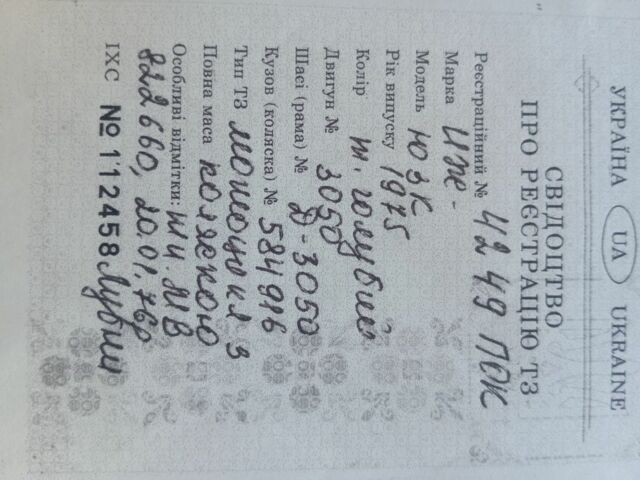 УКРАЇНА UA UKRAINE
СВІДОЦТВО
ПРО РЕЄСТРАЦІЮ ТЗ
Реєстраційний № 4249 ПОК
Марка ИЖ-
Модель ЮЗК
Рік випуску 1975
Колір т. голубий
Двигун № 3050
Шасі (рама) № Д-3050
Кузов (коляска) № 584916
Тип ТЗ мотоцикл з
Повна маса коляскою
Особливі відмітки: шн. МВ
822660, 20.01.76р
ІХС № 112458